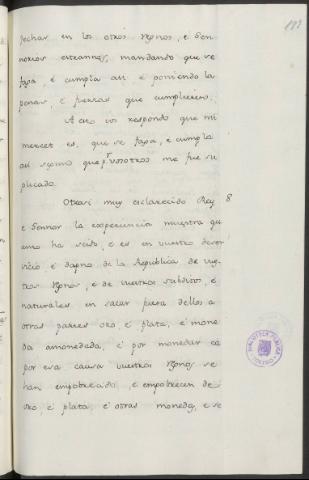 pechar en los otros Regnos, é Sen
norios estrannos, mandando que se
faga, é cumpla asi é poniendo la
penas, é fuerzas que cumplieren.
A esto vos respondo que mi
merced es, que se faga, é cumpla
asi segund que pr. vosotros me fue su
plicado.
Otrosi muy esclarecido Rey 8
é Sennor la experiencia muestra qu
ha seido, é es en vuestro deser
vicio é dapno de la Republica de vue
tros Regnos, é de vuestros subditos, é
naturales en sacar fuera dellos a
otras partes oro, é plata, é mone
da amonedada, é por monedar ca
por esa causa vuestros Regnos se
han empobrecido, é empobrecen de
oro, é plata, é otras moneda, é se